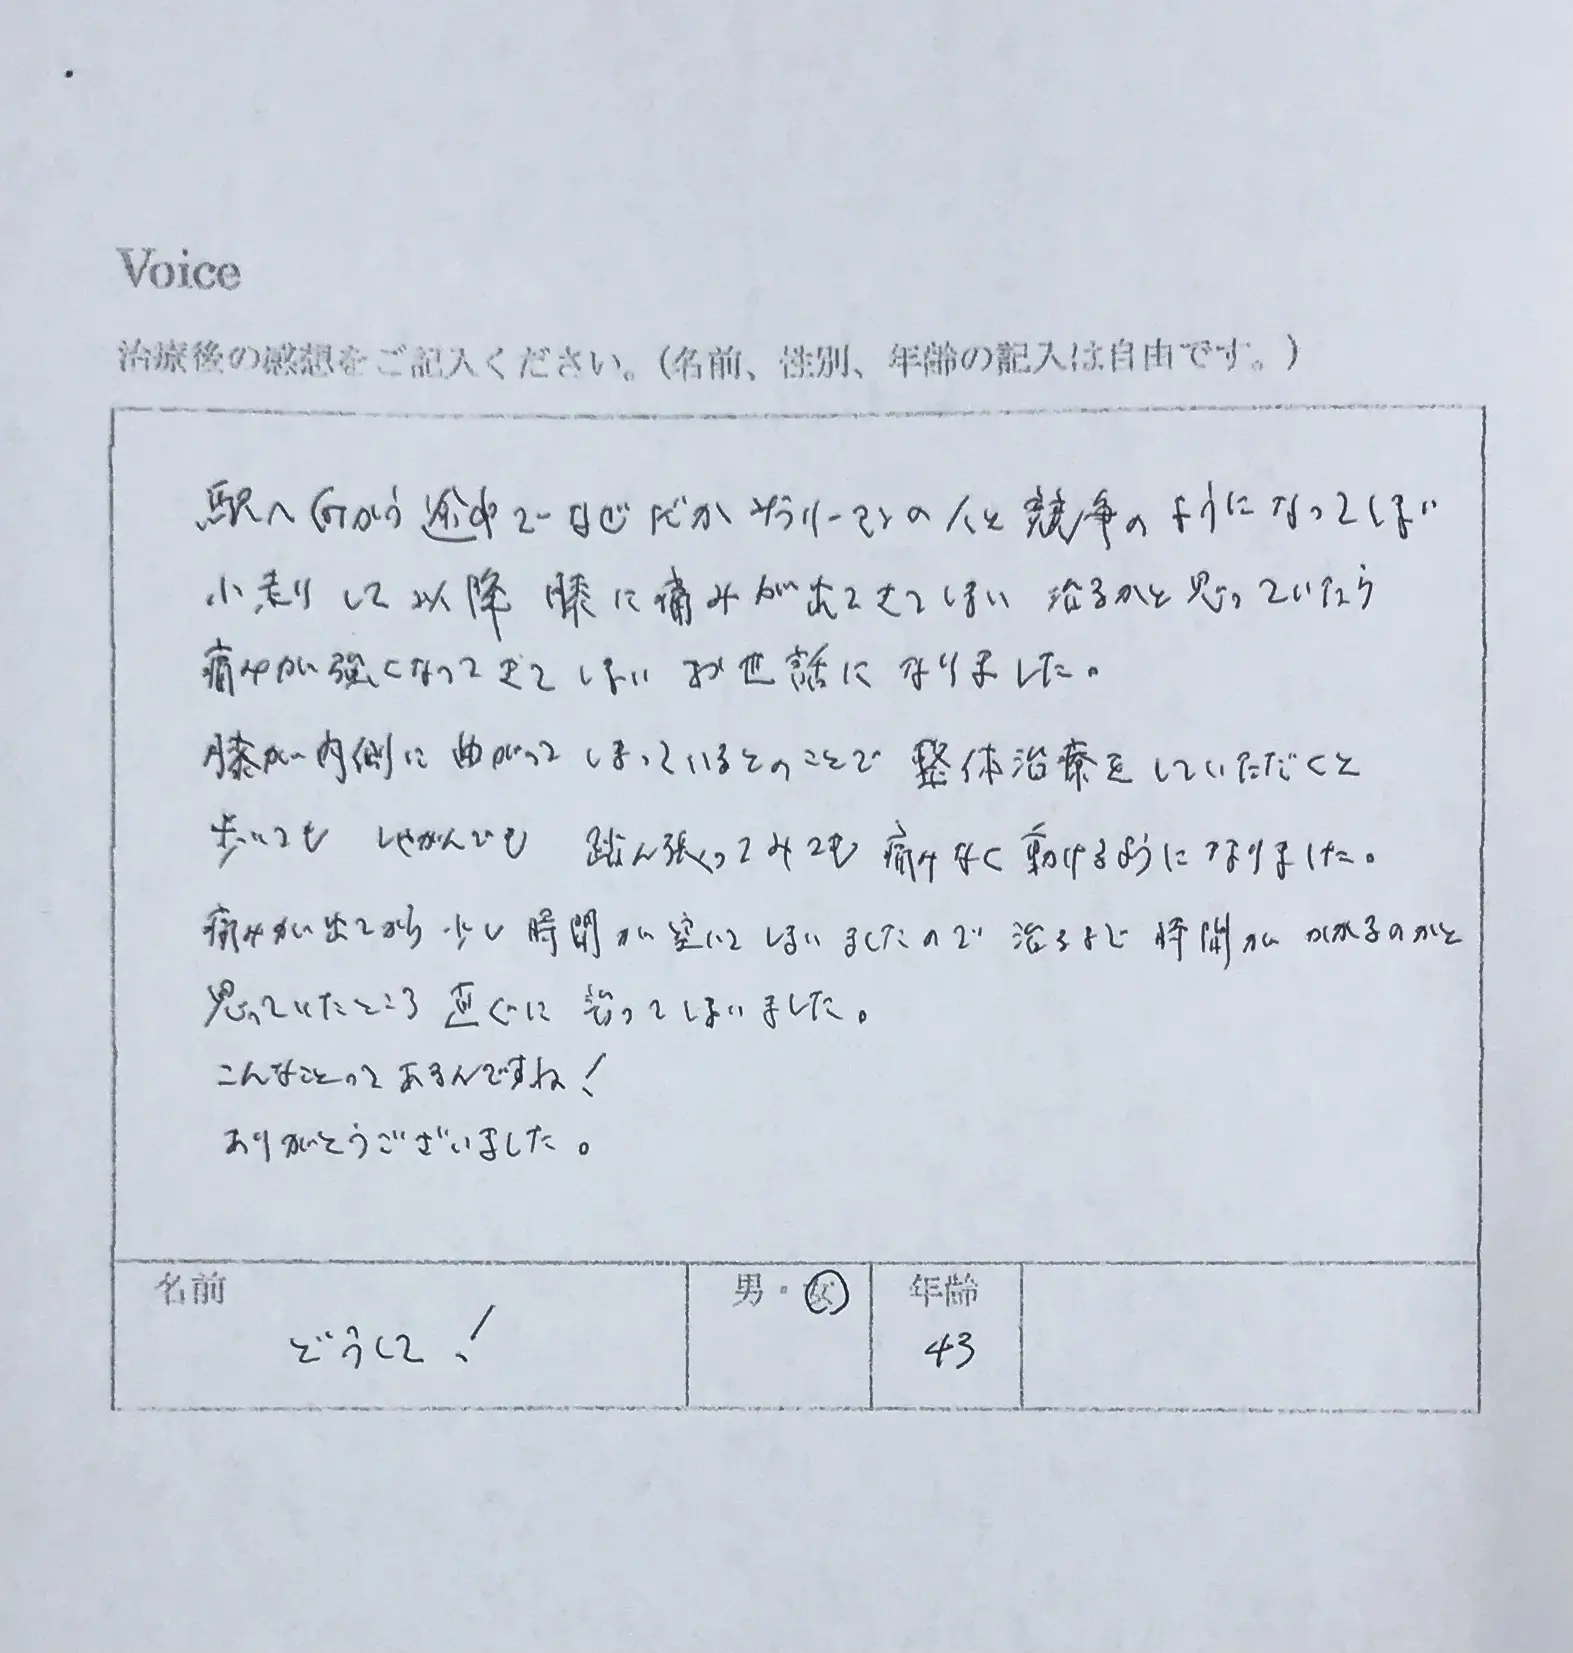 Voice
治療後の感想をご記入ください。（名前、性別、年齢の記入は自由です。）
駅へ向かう途中でなぜだかサラリーマンの人と競争のようになってしまい
小走りして以降 膝に痛みが出てきてしまい 治るかと思っていたら
痛みが強くなってきてしまい お世話になりました。
膝が内側に曲がってしまっているとのことで 整体治療をしていただくと
歩いても しゃがんでも 踏ん張ってみても 痛みなく動けるようになりました。
痛みが出てから少し時間が空いてしまいましたので 治るまで時間がかかるのかと
思っていたところ 直ぐに治ってしまいました。
こんなことってあるんですね！
ありがとうございました。
名前 男・女 年齢
どうして！ 43